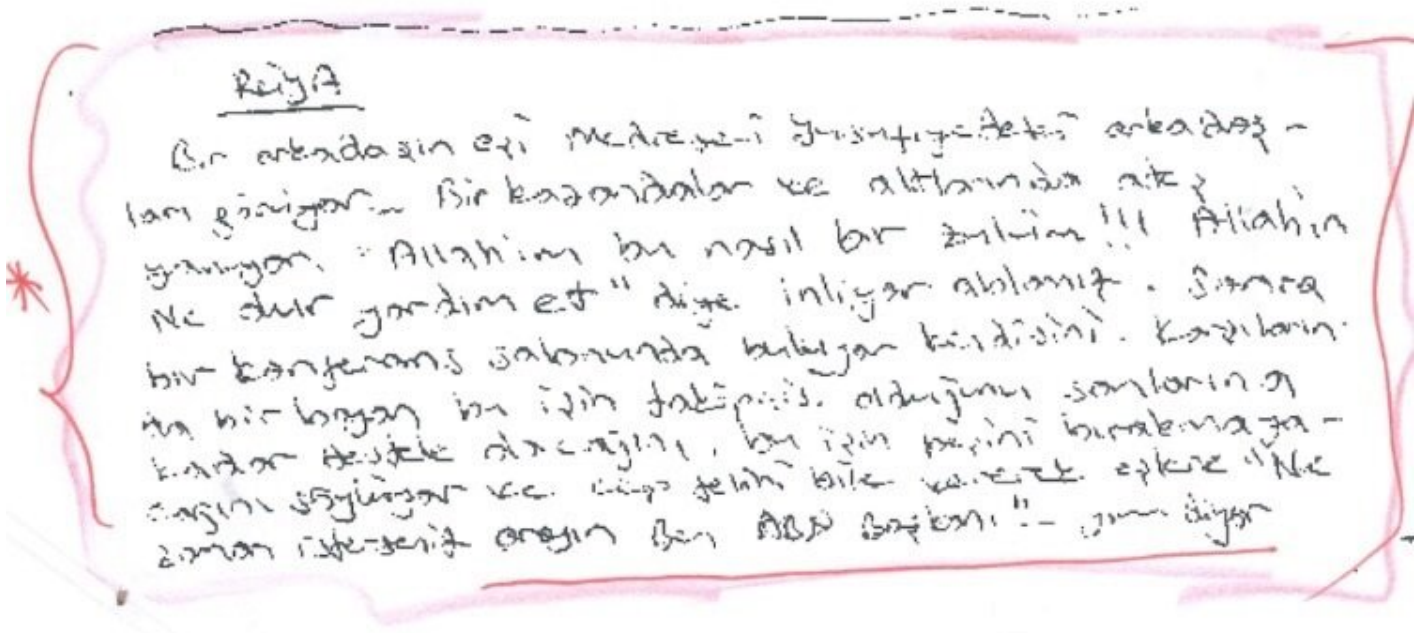 RüyA
Bir arkadaşın eşi Medrese-i Yusufiyedeki arkadaş-
ları görüyor... Bir kazandalar ve altlarında ateş
yanıyor. "Allahım bu nasıl bir zulüm!!! Allahım
Ne olur yardım et" diye inliyor ablamız. Sonra
bir konferans salonunda buluyor kendisini. Karşıların-
da bir bayan bu işin takipçisi olduğunu sonlarına
kadar destek olacağını, bu işin peşini bırakmaya-
cağını söylüyor ve cep telini bile vererek eşlere "Ne
zaman isterseniz arayın Ben ABD Başkanı"- yım diyor